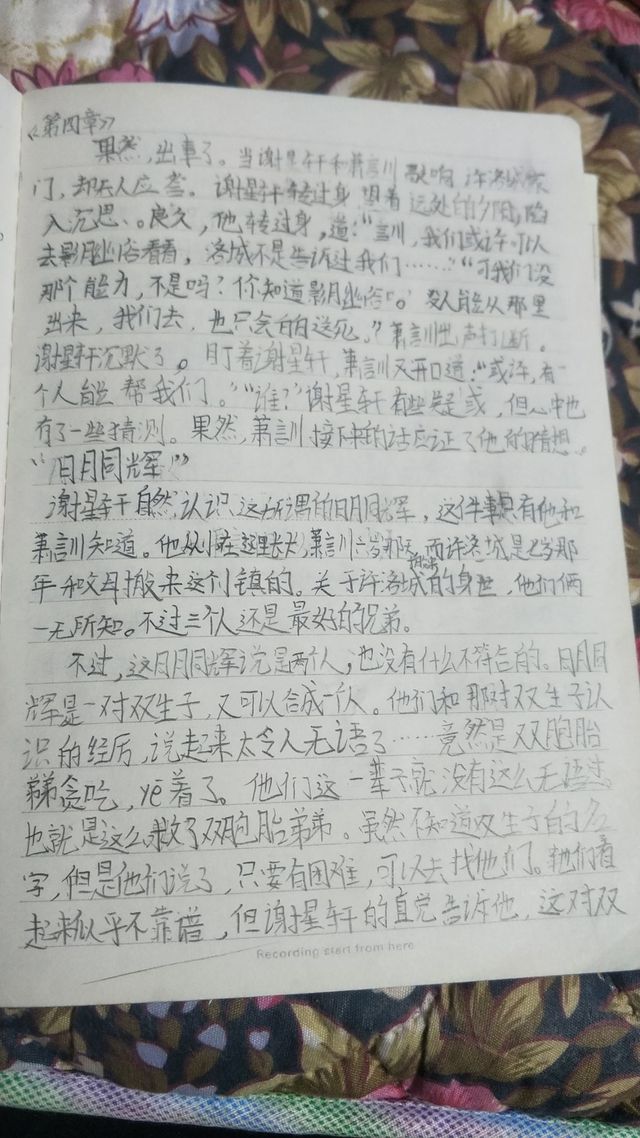 《第四章》
果然，出事了。当谢星轩和萧言川敲响许洛城家
门，却无人应答。谢星轩转过身望着远处的夕阳，陷
入沉思、。良久，他转过身，道：“言川，我们或许可以
去影月幽谷看看，洛城不是告诉过我们……”“可我们没
那个能力，不是吗？你知道影月幽谷吧。没人能从那里
出来，我们去，也只会白白送死。”萧言川出声打断。
谢星轩沉默了。盯着谢星轩，萧言川又开口道：“或许，有一
个人能帮我们。”“谁？”谢星轩有些疑惑，但心中也
有了一些猜测。果然，萧言川接下来的话应证了他的猜想。
“日月同辉！”
谢星轩自然认识这所谓的日月同辉，这件事只有他和
萧言川知道。他从小在这里长大，萧言川六岁那年 而许洛城是七岁那
年和父母搬来这个小镇的。关于许洛城的身世，他们俩
一无所知。不过三个人还是最好的兄弟。
不过，这日月同辉说是两个人，也没有什么不符合的。日月同
辉是一对双生子，又可以合成一人。他们和那对双生子认
识的经历，说起来太令人无语了……竟然是双胞胎
弟弟贪吃，yē着了。他们这一辈子就没有这么无语过。
也就是这么救了双胞胎弟弟。虽然不知道双生子的名
字，但是他们说了，只要有困难，可以去找他们。他们看
起来似乎不靠谱，但谢星轩的直觉告诉他，这对双
Recording start from here